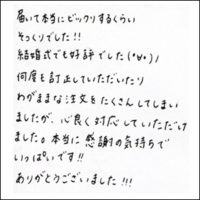 届いて本当にビックリするくらい
そっくりでした!!
結婚式でも好評でした(*'∀'*)ノ
何度も訂正していただいたり
わがままな注文をたくさんしてしまい
ましたが、心良く対応していただけ
ました。本当に感謝の気持ちで
いっぱいです!!
ありがとうございました!!!